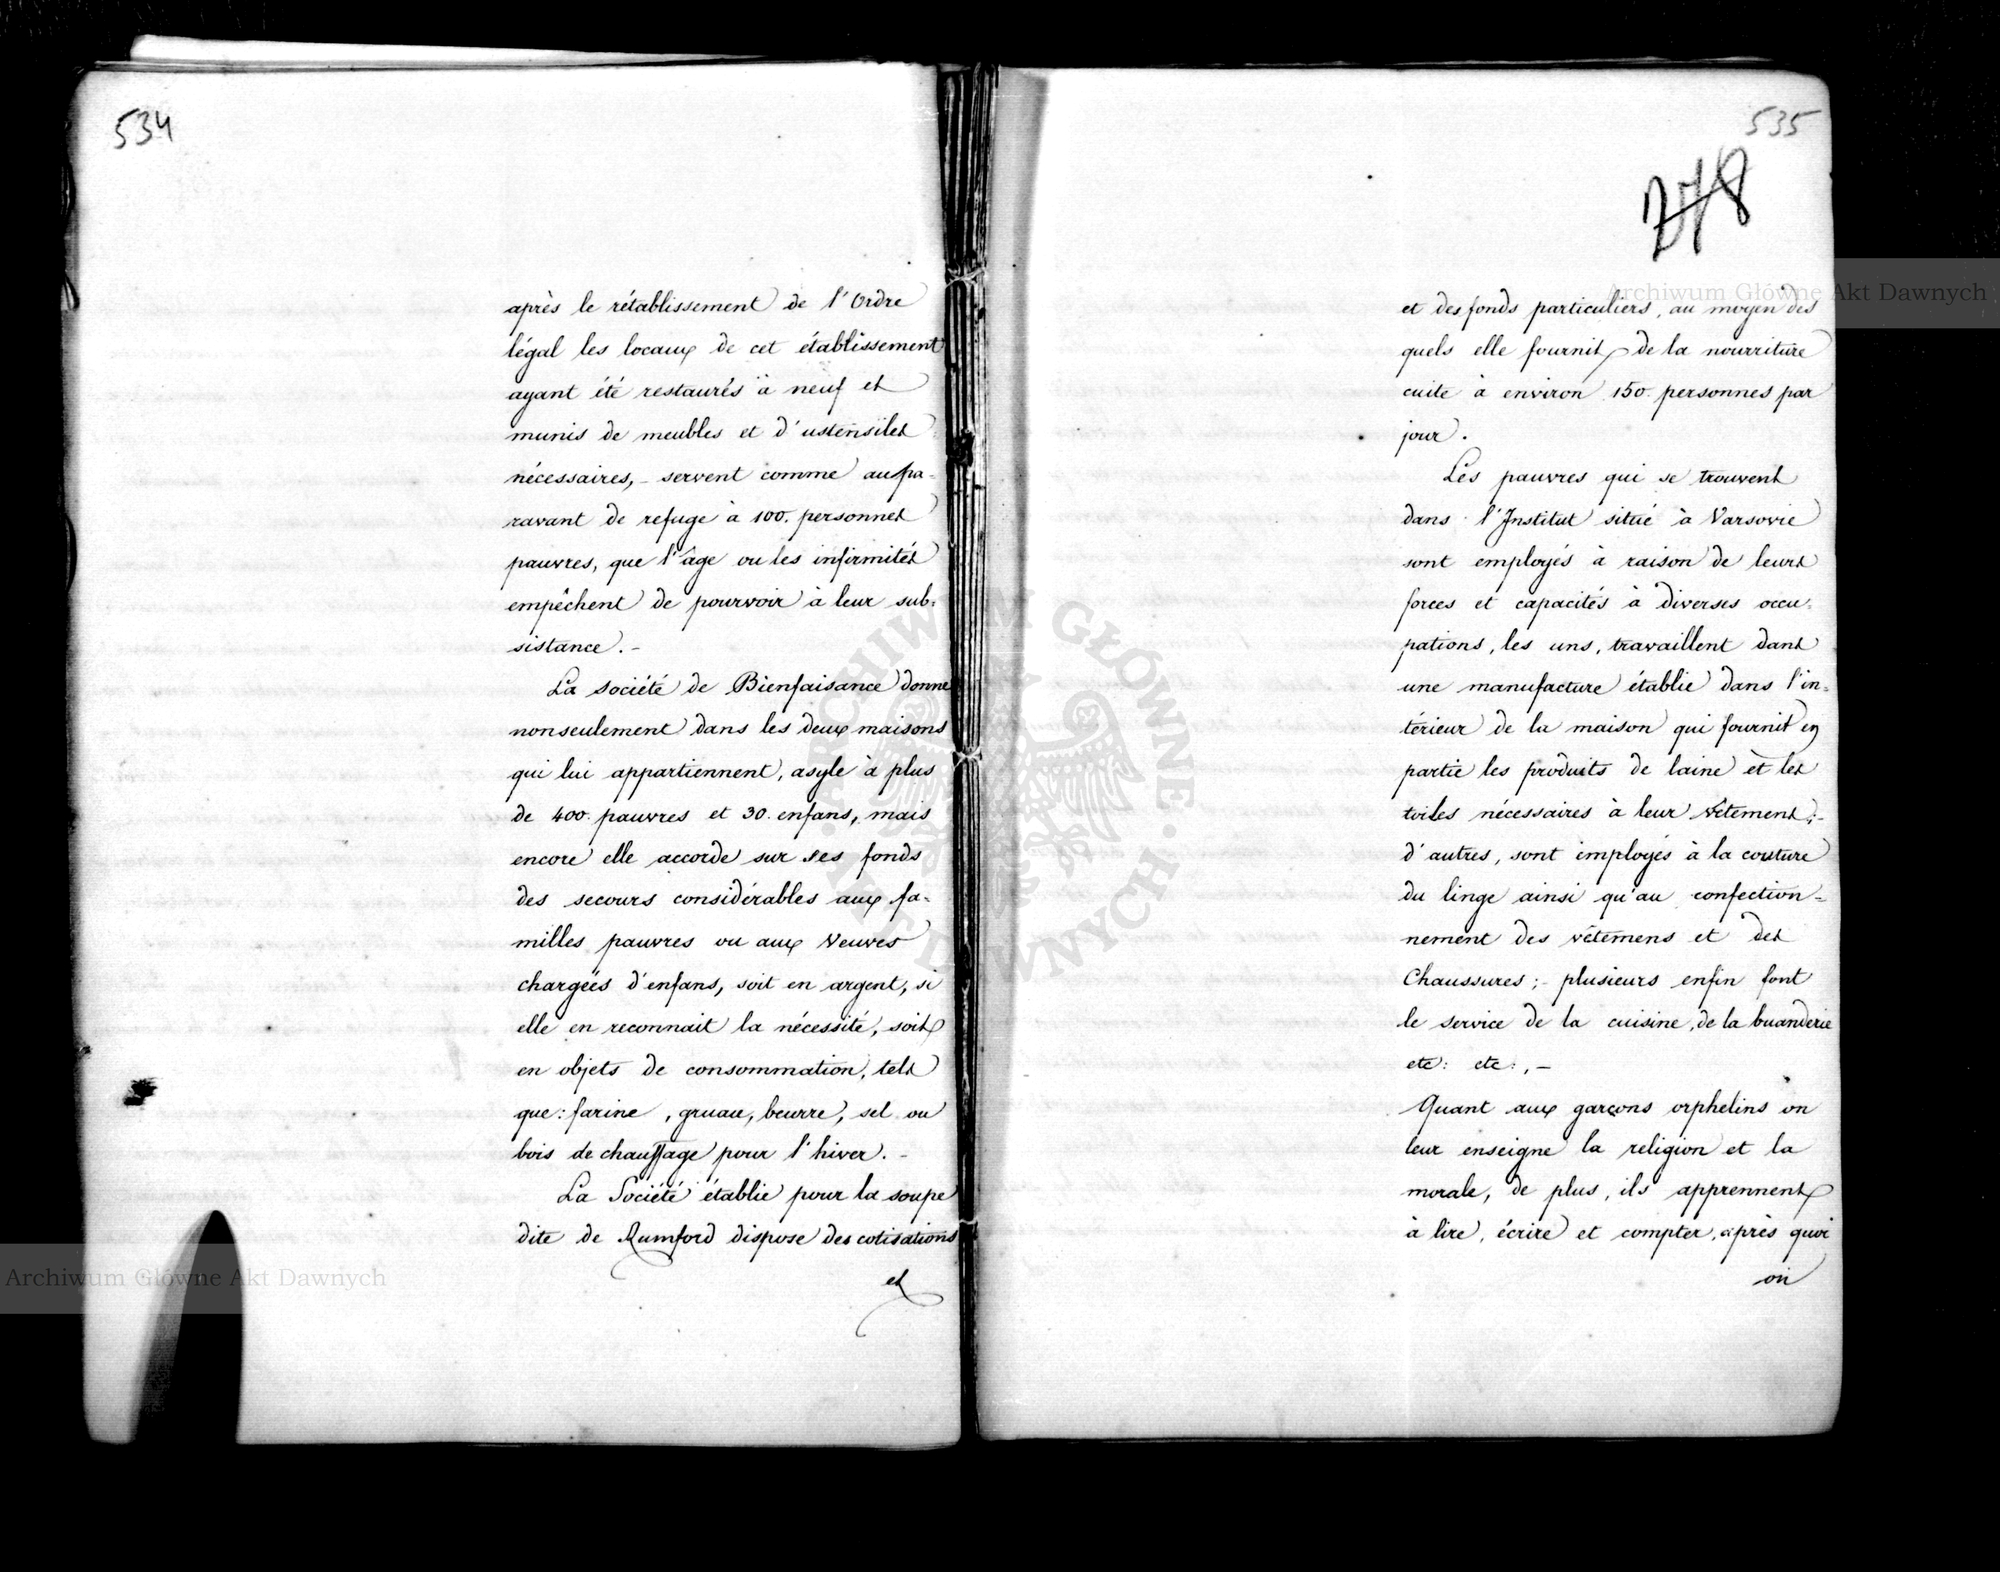 534
après le rétablissement de l'Ordre
légal les locaux de cet établissement
ayant été restaurés à neuf et
munis de meubles et d'ustensiles
nécessaires, - servent comme aupa-
ravant de refuge à 100. personnes
pauvres, que l'âge ou les infirmités
empêchent de pourvoir à leur sub-
sistance. -
La société de Bienfaisance donne
nonseulement dans les deux maisons
qui lui appartiennent, asyle à plus
de 400. pauvres et 30. enfans, mais
encore elle accorde sur ses fonds
des secours considérables aux fa-
milles pauvres ou aux Veuves
chargées d'enfans, soit en argent, si
elle en reconnait la nécessité, soit
en objets de consommation, tels
que: farine, gruau, beurre, sel ou
bois de chauffage pour l'hiver. -
La Société établie pour la soupe
dite de Rumford dispose des cotisations
et
535
278
et des fonds particuliers, au moyen des
quels elle fournit de la nourriture
cuite à environ 150. personnes par
jour.
Les pauvres qui se trouvent
dans l'Institut situé à Varsovie
sont employés à raison de leurs
forces et capacités à diverses occu-
pations, les uns, travaillent dans
une manufacture établie dans l'in-
térieur de la maison qui fournit en
partie les produits de laine et les
toiles nécessaires à leur vêtement; -
d'autres, sont employés à la couture
du linge ainsi qu'au confection-
nement des vêtemens et des
Chaussures; - plusieurs enfin font
le service de la cuisine, de la buanderie
etc: etc:, -
Quant aux garçons orphelins on
leur enseigne la religion et la
morale, de plus, ils apprennent
à lire, écrire et compter, après quoi
on
Archiwum Główne Akt Dawnych
Archiwum Główne Akt Dawnych